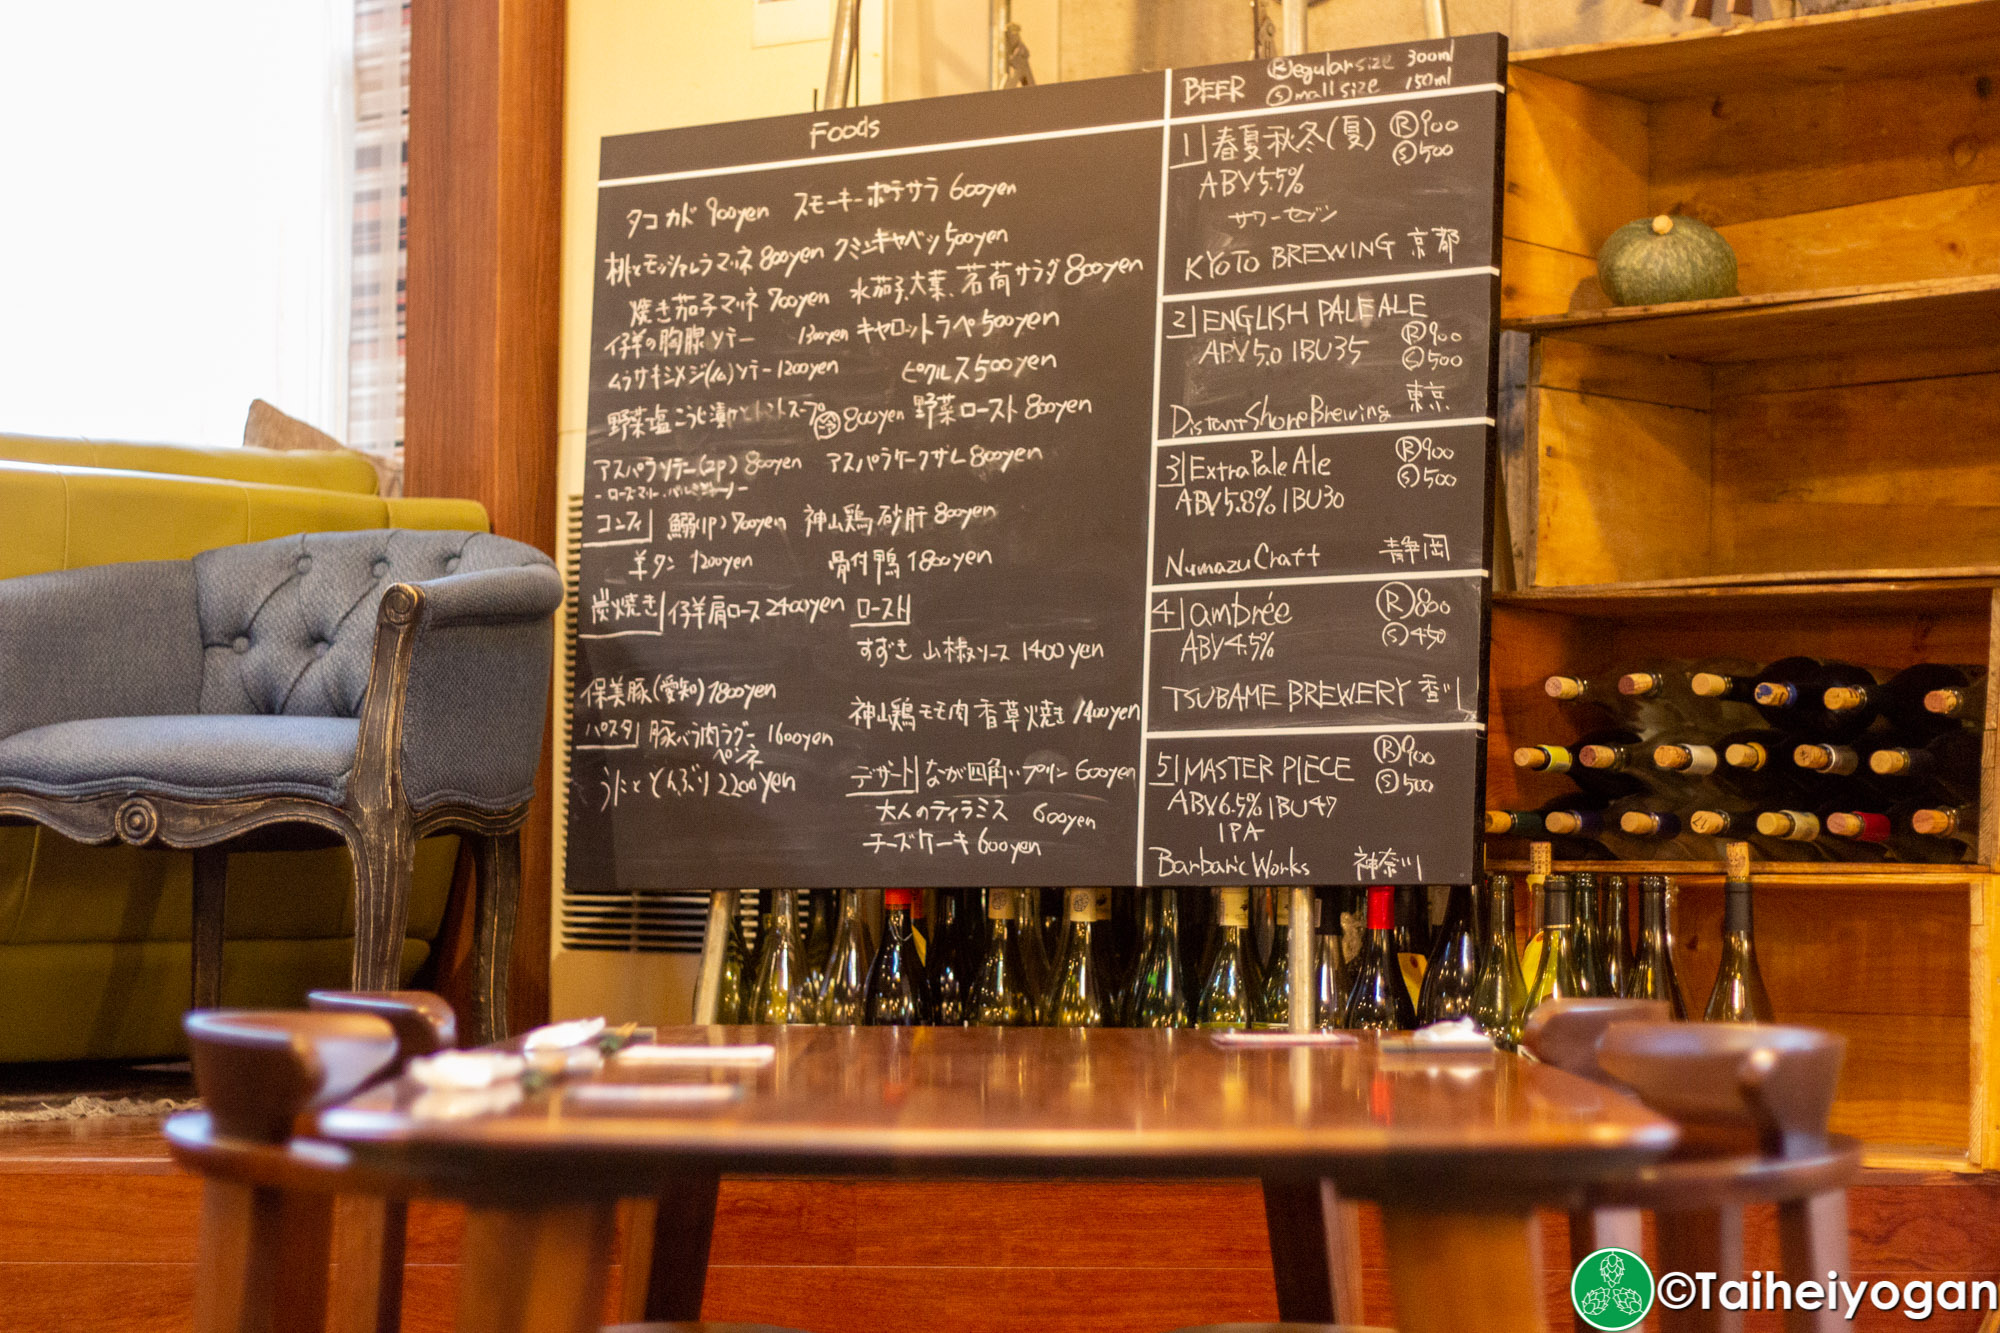 Foods
タコ カド 900yen スモーキーポテサラ 600yen
桃とモッツァレラマリネ 800yen クミンキャベツ 500yen
焼き茄子マリネ 700yen 水茄子、大葉、茗荷サラダ 800yen
仔羊の胸腺ソテー 1300yen キャロットラペ 500yen
ムラサキシメジ(仏)ソテー 1200yen ピクルス 500yen
野菜塩こうじ漬けとトマトスープ 800yen 野菜ロースト 800yen
アスパラソテー(2p) 800yen アスパラケークサレ 800yen
コンフィ 鰯(1p) 700yen 神山鶏 砂肝 800yen
羊タン 1200yen 骨付鴨 1800yen
炭火焼き 仔羊肩ロース 2400yen ロースト
すずき 山椒ソース 1400yen
保美豚(愛知) 1800yen
神山鶏モモ肉 香草焼き 1400yen
パスタ 豚バラ肉ラグー 1600yen
ペンネ
うにとどんぶり 2200yen
デザート ながい四角いプリン 600yen
大人のティラミス 600yen
チーズケーキ 600yen
BEER Ⓡegular size 300ml
Ⓢmall size 150ml
1 春夏秋冬(夏) Ⓡ900
Ⓢ500
ABV5.5%
サワーセゾン
KYOTO BREWING 京都
2 ENGLISH PALE ALE
Ⓡ900
ABV5.0 IBU35 Ⓢ500
Distant Shore Brewing 東京
3 Extra Pale Ale Ⓡ900
Ⓢ500
ABV5.8% IBU30
Numazu Craft 静岡
4 ambrée Ⓡ800
ABV4.5% Ⓢ450
TSUBAME BREWERY 香川
5 MASTER PIECE Ⓡ900
Ⓢ500
ABV6.5% IBU47
IPA
Barbaric Works 神奈川
©Taiheiyogan